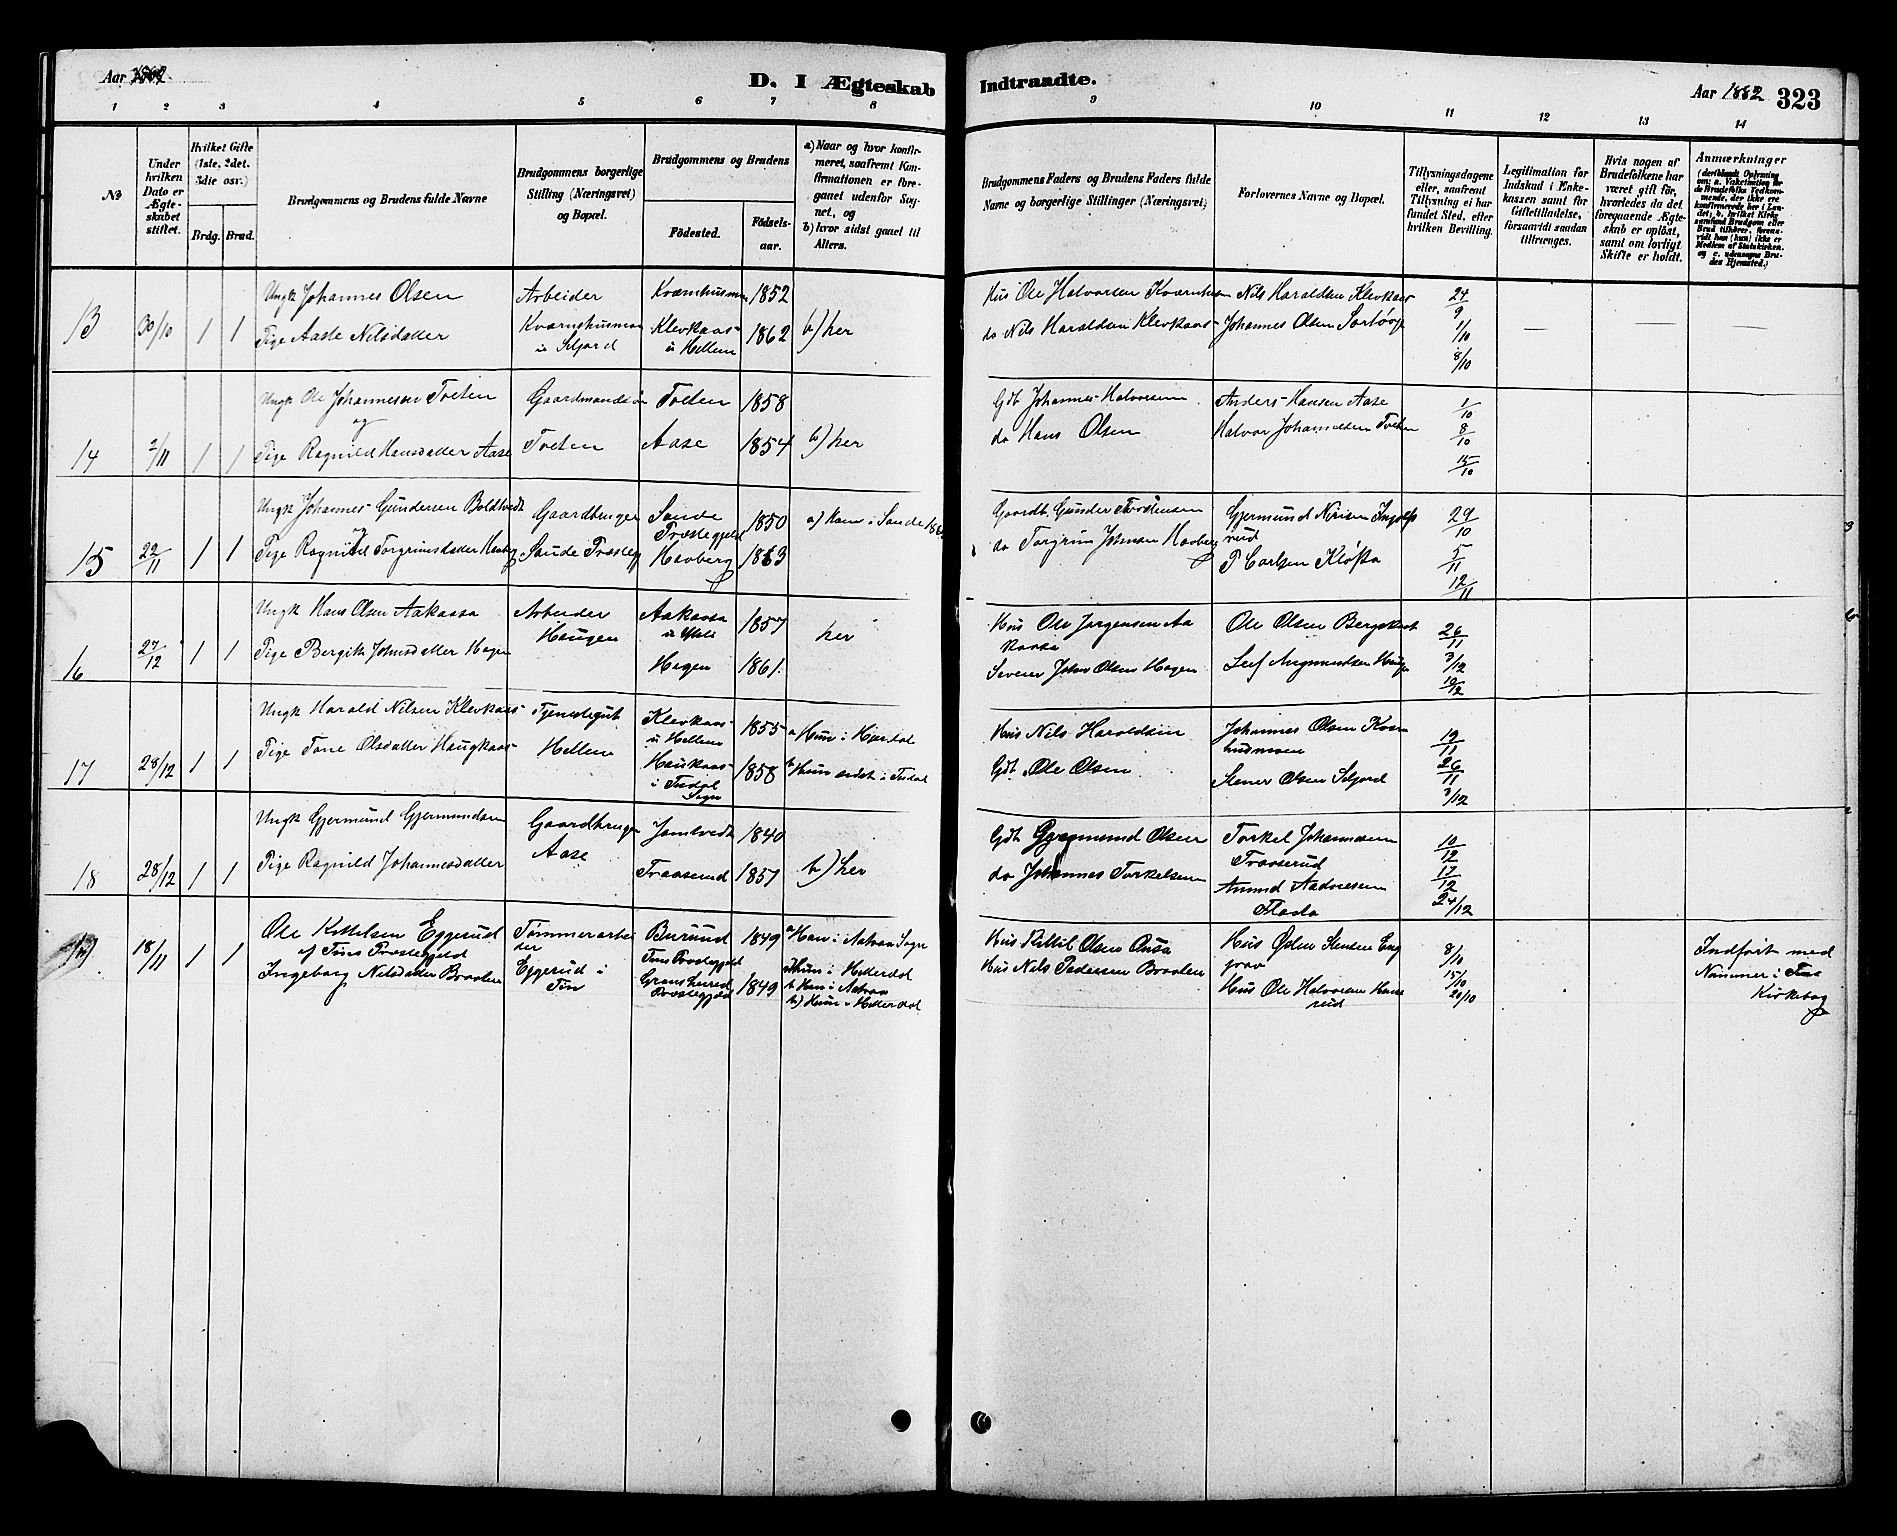 Aar 1882. D. I Ægteskab Indtraadte. Aar 1882 323
1 2 3 4 5 6 7 8 9 10 11 12 13 14
No
Under hvilken Dato er Ægteskabet stiftet.
Hvilket Gifte (1ste, 2det. 3die osv.)
Brdg. Brud.
Brudgommens og Brudens fulde Navne
Brudgommens borgerlige Stilling (Næringsvei) og Bopæl.
Brudgommens og Brudens
Fødested. Fødselsaar.
a) Naar og hvor konfirmeret, saafremt Konfirmationen er foregaaet udenfor Sognet, og
b) hvor sidst gaaet til Alters.
Brudgommens Faders og Brudens Faders fulde Navne og borgerlige Stillinger (Næringsvei)
Forlovernes Navne og Bopæl.
Tillysningsdagene eller, saafremt Tillysning ei har fundet Sted, efter hvilken Bevilling.
Legitimation for Indskud i Enkekassen samt for Giftetilladelse, forsaavidt saadan tiltrænges.
Hvis nogen af Brudefolkene har været gift før, hvorledes da det foregaaende Ægteskab er opløst, samt om lovligt Skifte er holdt.
Anmærkninger
(deriblandt Oplysning om: a. Vakcination for de Brudefolks Vedkommende, der ikke ere konfirmerede her i Landet; b. hvilket Kirkesamfund Brudgom eller Brud tilhører, forsaavidt han (hun) ikke er Medlem af Statskirken, og c. udensogns Brudes Hjemsted.)
13 30/10 1 1 Ungk Johannes Olsen Arbeider 1852 Hus Ole Halvorsen Nils Haraldsen Klevkaas 24/9
Pige Aaste Nilsdatter i Seljord Klevkaas i Hellem 1862 b) her do Nils Haraldsen Klevkaas Johannes Olsen 1/10
8/10
14 2/11 1 1 Ungk Ole Johannesen Tveten Tveten 1858 Gdb Johannes Halvorsen Anders Hansen Aase 1/10
og
Pige Ragnild Hansdatter Aase Tveten Aase 1854 b) her do Hans Olsen Halvor Johannesen Tveten 8/10
15/10
15 22/11 1 1 Ungk Johannes Gundersen Boldtvedt Gaardbruger Sande Præstegjeld 1850 a) Ham i Sande Gaardb. Gunder Gjermund 29/10
Pige Ragnild Torgrimsdatter Havberg Saude Præsteg Havberg 1863 do Torgrim Johnsen Havberg P Carlsen Kløfta 5/11
12/11
16 27/12 1 1 Ungk Hans Olsen Aakaasa Arbeider Aakaasa 1857 her Hus Ole Jørgensen Aakaasa Ole Olsen 26/11
Pige Bergit Johnsdatter Hagen Haugen Hagen 1861. John Olsen Hagen 3/12
10/12
17 28/12 1 1 Ungk Harald Nilsen Klevkaas Tjenestegut Klevkaas i Hellem 1855 a Hun i Hjerdal Hus Nils Haroldsen Johannes Olsen 19/11
Pige Tone Olsdatter Haugkaas Hellem Haukaas i Tudal Sogn 1858 b Hun sidst i Tudal Gdb Ole Olsen Stener Olsen Seljord 26/11
3/12
18 28/12 1 1 Ungk Gjermund Gjermundsen Gaardbruger 1840 Gdb Gjermund Olsen Torkel Johannesen Traaserud 10/12
Pige Ragnild Johannesdatter Aase Traaserud 1857 b) her do Johannes Torkelsen Anund Aadnesen 17/12
24/12
18/11 1 1 Ole Kittelsen Eggerud Tømmerarbeider 1849 a Han i Sogn Hus Kittil Olsen Hus Østen 8/10 Indført med
af Tins Præstegjeld Eggerud i Tins Præstegjeld Hun i Hitterdal 15/10 Nummer i Tins
Ingeborg Nilsdatter Braaten Tin Gransherred Præstegjeld 1849 b) Hun i Hitterdal Hus Nils Pedersen Braaten Hus Ole Halvorsen 20/10 Kirkebog